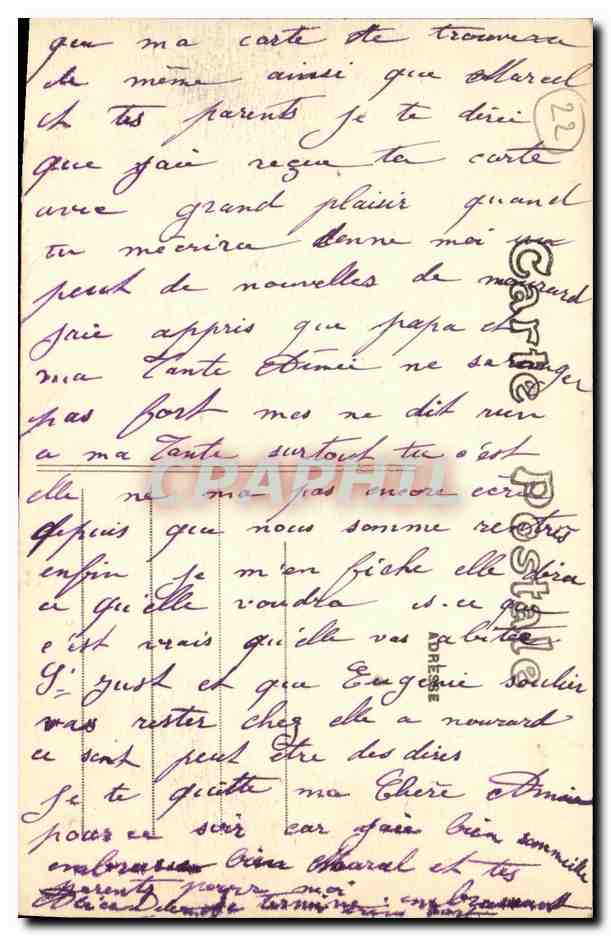 que ma carte te trouvera
de même ainsi que Marcel
et tes parents je te dirai
22
que jaie reçue ta carte
avec grand plaisir quand
tu mécrira donne moi un
peut de nouvelles de
jaie appris que papa et
ma Tante Aimée ne
pas fort mes ne dit rien
a ma Tante surtout tu c'est
elle ne ma pas encore
depuis que nous somme rentrés
enfin je m'en fiche elle fera
ce qu'elle voudra es-ce que
c'est vrais qu'elle vas abitée
St Just et que Eugenie soulier
vas rester chez elle a nourard
ce sont peut être des dires
Je te quitte ma Chère
pour ce soir car jaie bien sommeille
bien Marcel et tes
parents pour moi
termine
Carte Postale
ADRESSE
CPARAMA